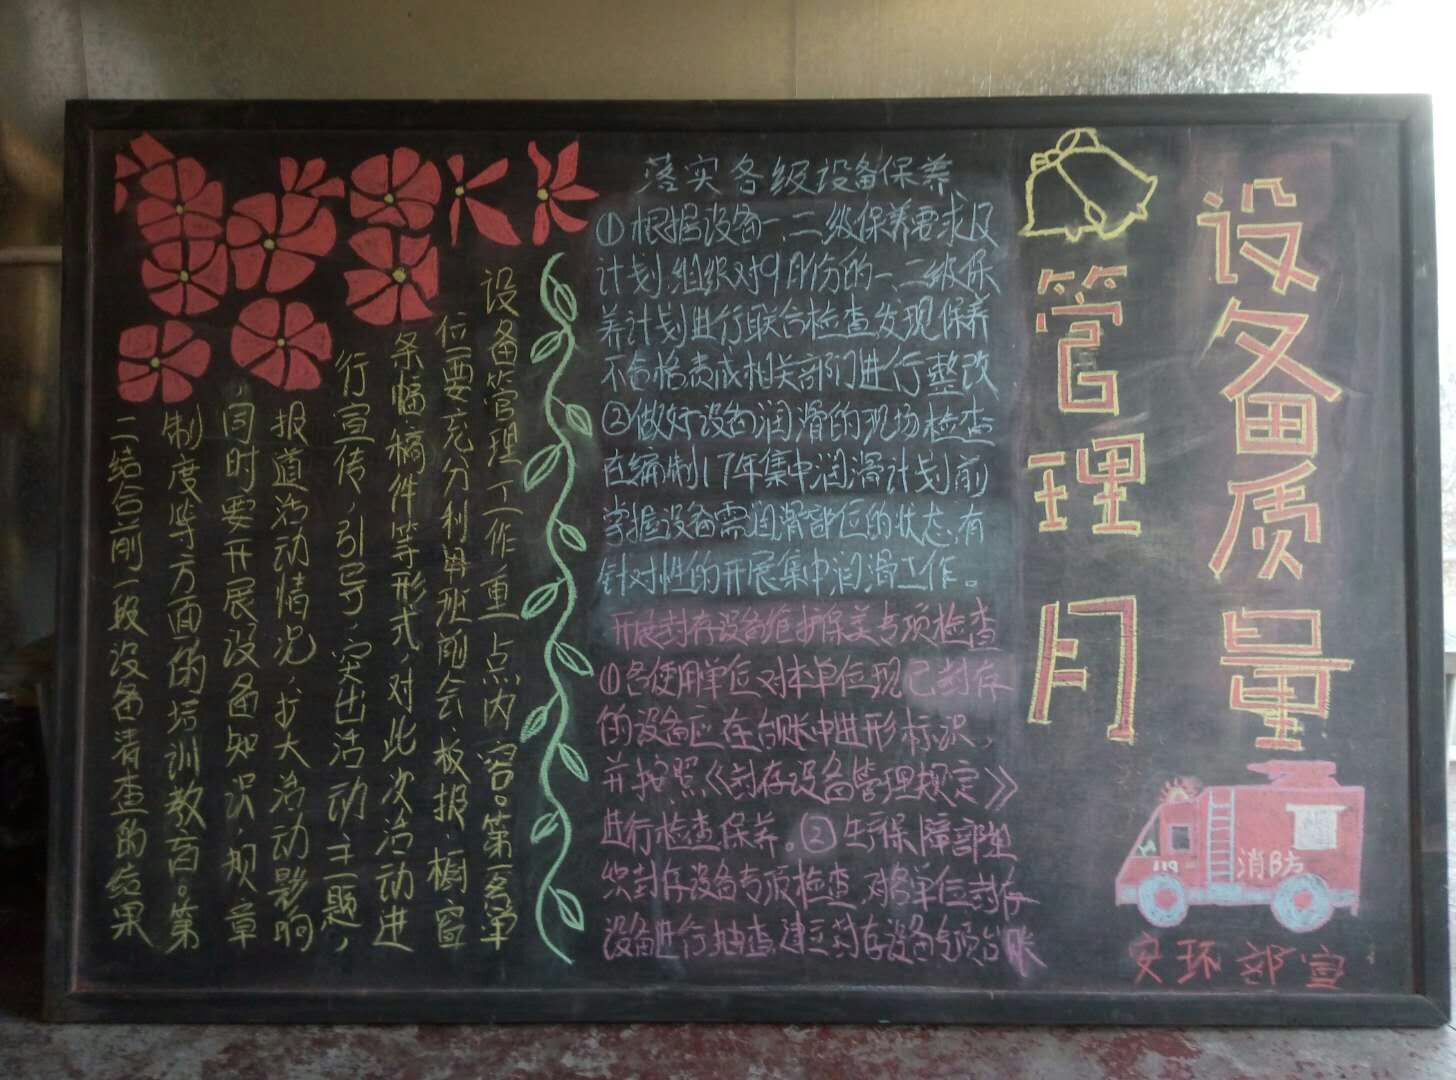 设备质量
管理月
落实各级设备保养
①根据设备一、二级保养要求及
计划组织对9月份的一二级保
养计划进行联合检查发现保养
不合格责成相关部门进行整改
②做好设备润滑的现场检查
在编制17年集中润滑计划前
掌握设备需润滑部位的状态,有
针对性的开展集中润滑工作。
开展封存设备维护保养专项检查
①各使用单位对本单位现已封存
的设备应在台账中进形标识,
并按照《封存设备管理规定》
进行检查保养。②生产保障部组
织封存设备专项检查,对各单位封存
设备进行抽查,建立封存设备专项台账
设备管理工作重点内容。第一各单
位要充分利用班前会、板报、橱窗
条幅稿件等形式,对此次活动进
行宣传,引导,突出活动主题,
报道活动情况,扩大活动影响
同时要开展设备知识、规章
制度等方面的培训教育。第
二结合前一段设备清查的结果
消防
119
安环部宣